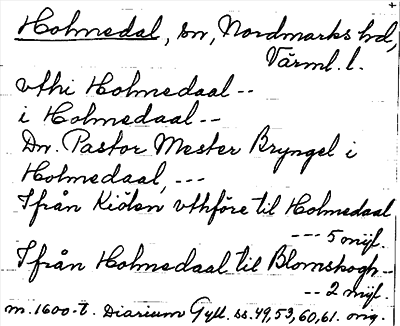 Holmedal, sn, Nordmarks hd,
Värml. l.
vthi Holmedaal --
i Holmedaal --
Dn. Pastor Mester Bryngel i
Holmedaal, ---
Ifrån Kiölen vthföre til Holmedaal
--- 5 mijl.
Ifrån Holmedaal til Blomskogh --
-- 2 mijl.
m. 1600-t. Diarium Gyll. ss. 49, 53, 60, 61. orig.